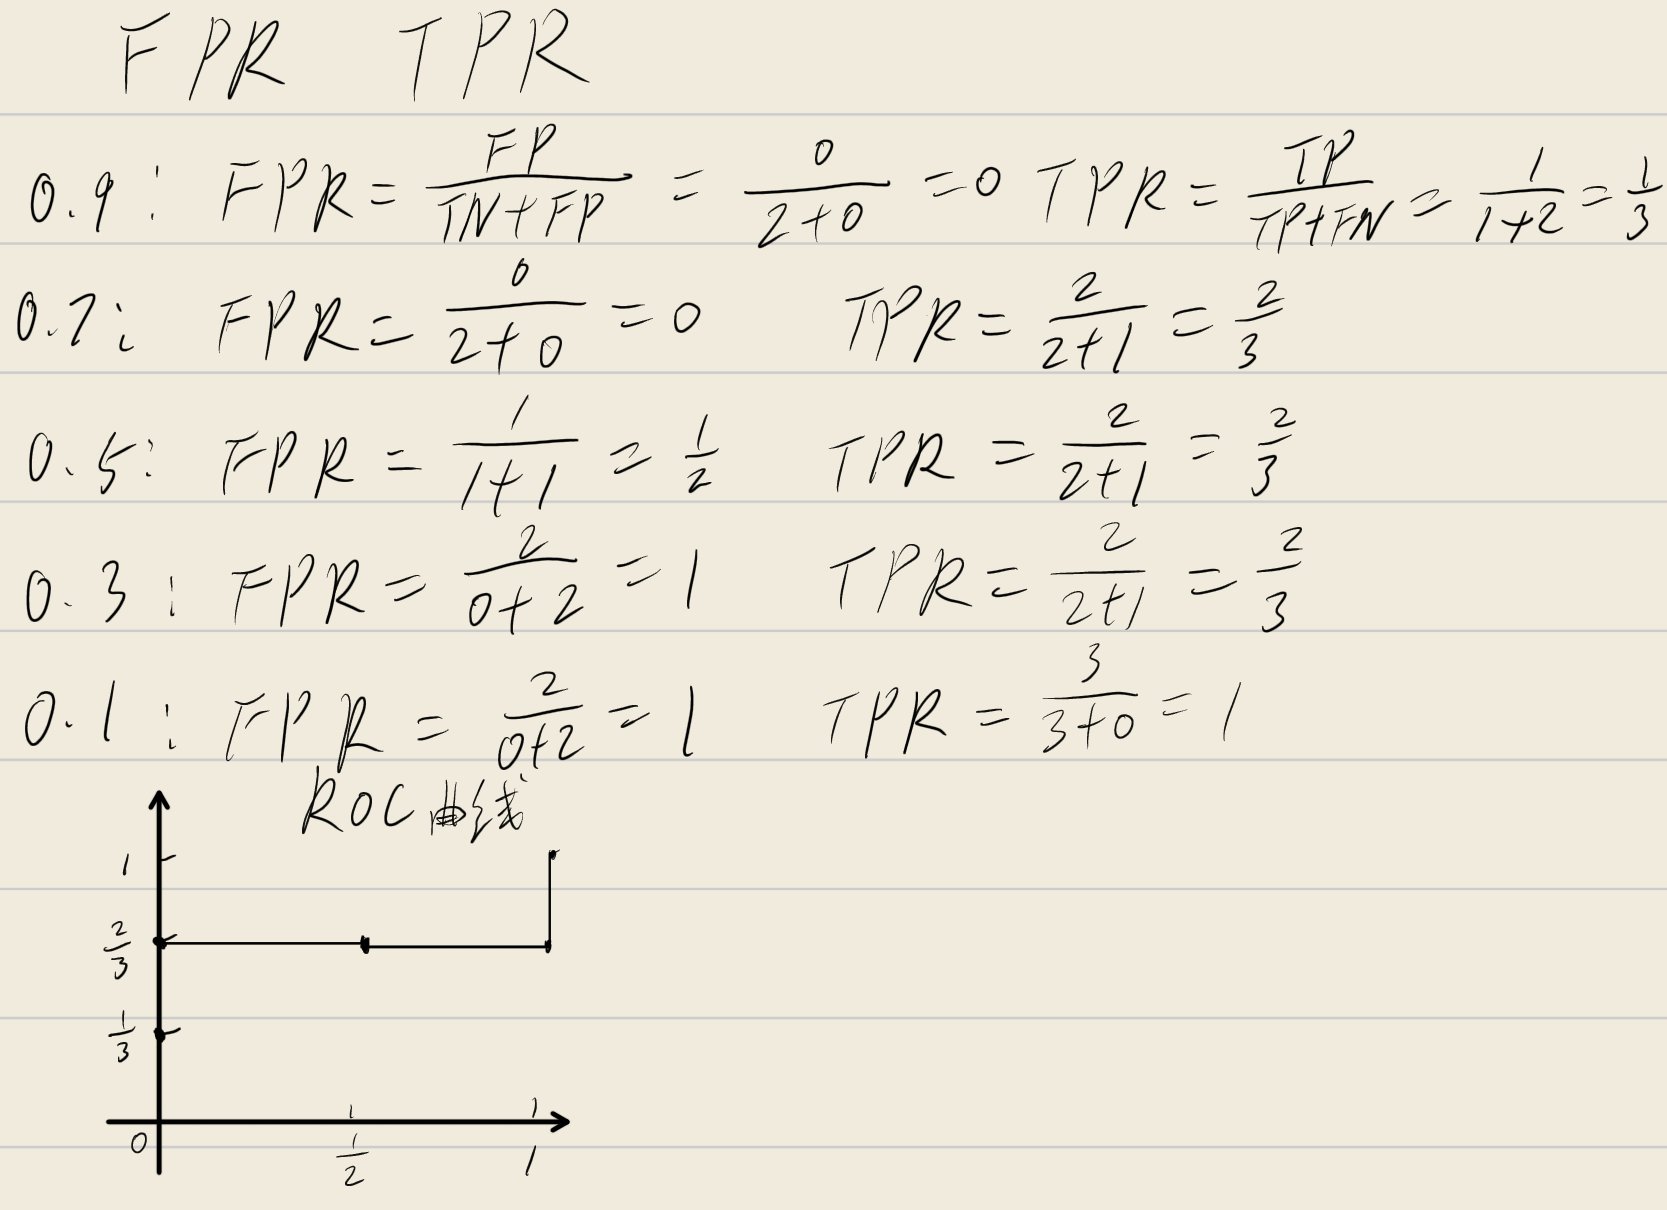 FPR TPR
0.9: FPR = FP/(TN+FP) = 0/(2+0) = 0 TPR = TP/(TP+FN) = 1/(1+2) = 1/3
0.7: FPR = 0/(2+0) = 0 TPR = 2/(2+1) = 2/3
0.5: FPR = 1/(1+1) = 1/2 TPR = 2/(2+1) = 2/3
0.3: FPR = 2/(0+2) = 1 TPR = 2/(2+1) = 2/3
0.1: FPR = 2/(0+2) = 1 TPR = 3/(3+0) = 1
ROC曲线
1
2/3
1/3
0 1/2 1